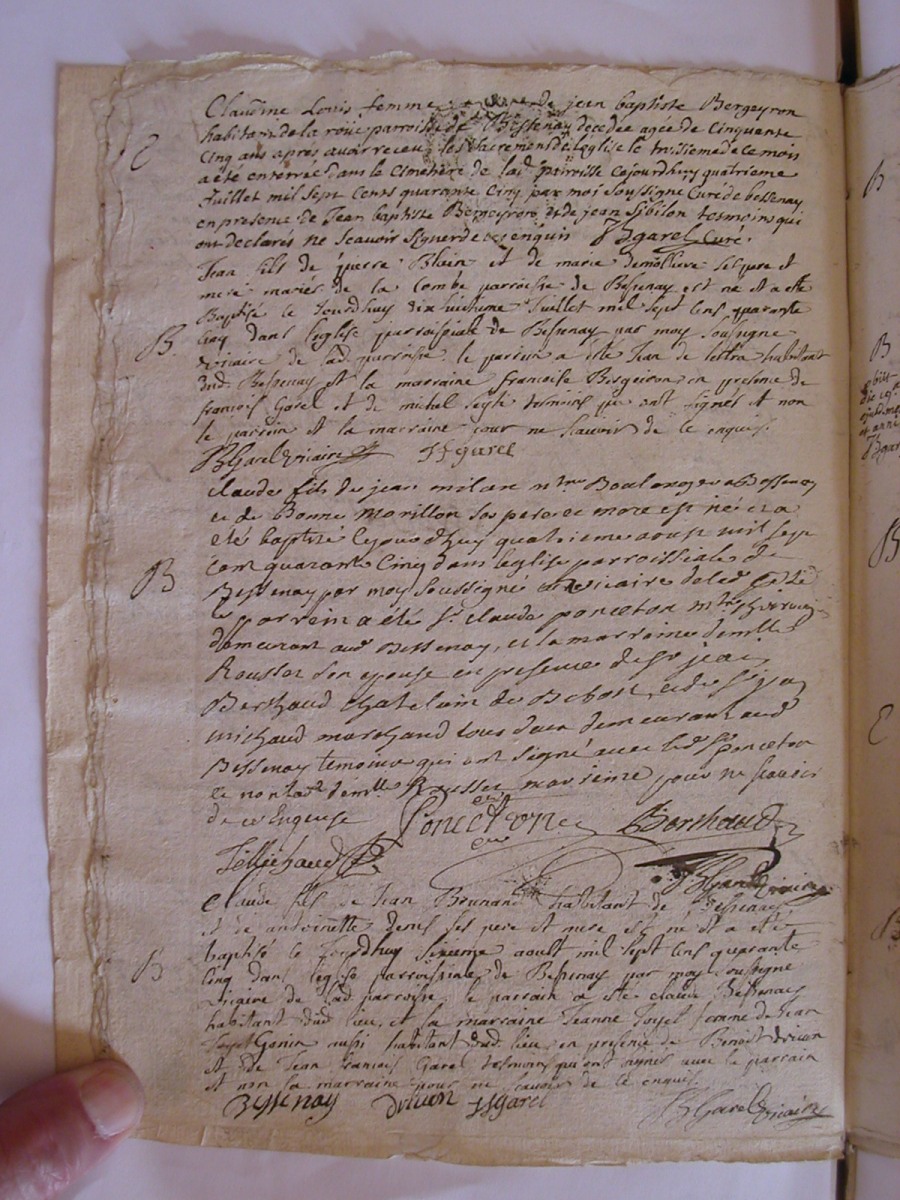 Claudine Louis femme de jean baptiste Bergeyron
habitans de la roüe parroisse de Bessenay decedée agée de Cinquente
E
Cinq ans apres avoir receu les Sacremens de l'eglise le troisieme de ce mois
a eté enterrée dans le Cimetiere de lad parroisse Cejourdhuy quatrieme
Juillet mil Sept Cents quarante Cinq par moi Soussigné Curé de bessenay
en presence de Jean baptiste et de jean Sibilon tesmoins qui
ont declarés ne Scavoir Signer de ce enquis JBgarel Curé
Jean fils de pierre Blain et de marie ses pere et
mere mariés de la Combe parroisse de Bessenay est né et a eté
Baptisé le Jourdhuy dix huitieme Juillet mil Sept Cens quarante
B
Cinq dans l'eglise parroissiale de Bessenay par moy Sousigne
vicaire de lad. parroisse le parrein a été Jean de habitant
dud. Bessenay et la marraine francoise en presence de
francois Garel et de michel tesmoins qui ont signés et non
le parrein et la marraine pour ne Scavoir de ce enquis.
JBGarel vicaire JFgarel
claude fils de jean milan mtre Boulanger a Bessenay
et de Bonne morillon ses pere et mere est né et a
eté baptisé cejourdhuy quatrieme aoust mil sept
cent quarante Cinq dans leglise parroissiale de
B
Bessenay par moy soussigné vicaire dele
le parrein a été Sr. claude ponceton mtre
demeurant aud Bessenay, et la marraine demlle
Rousset son epouse en presence de Sr jean
Berthaud chatelain de et de Sr
michaud marchand tous deux demeurant aud
Bessenay temoins qui ont signé avec led Sr ponceton
et non lad. demlle Rousset marreine pour ne scavoir
de ce Enquise Poncetonc Berthaud
JBGarel vicaire
Claude fils de Jean Brunand habitant de Bessenay
et de antoinette denis ses pere et mere est né et a eté
baptisé le Jourdhuy Sixieme aoult mil sept Cens quarante
B
Cinq dans l'eglise parroissiale de Bessenay par moy sousigne
vicaire de lad parroisse le parrain a eté claude Bessenay
habitant dud lieu, et la marraine Jeanne Joyet femme de Jean
Joyet Gonin aussi habitant dud. lieu en presence de Benoist drivon
et de Jean francois Garel tesmoins qui ont signés avec le parrain
et non la marraine pour ne Scavoir de ce enquis.
Bessenay drivon JFgarel JBGarel vicaire